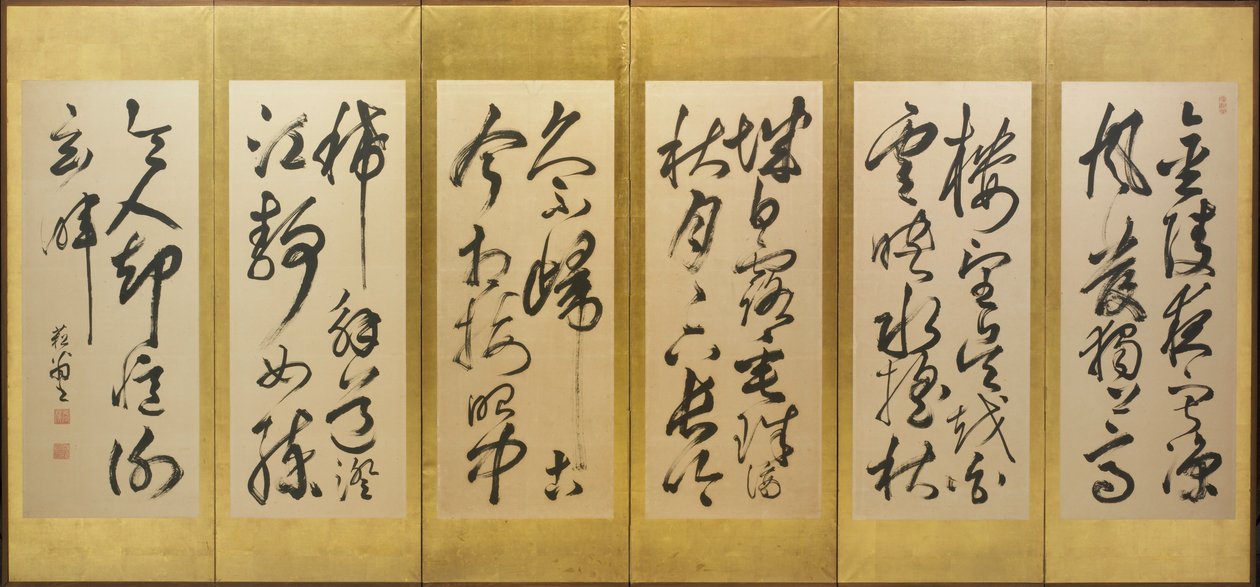 金陵夜寂涼
風發獨上高
樓望吳越白
雲映水搖秋
城白露垂珠滴
秋月〻下長吟
久不歸古
今相接眼中
稀解道澄
江靜如練
令人却憶謝
玄暉